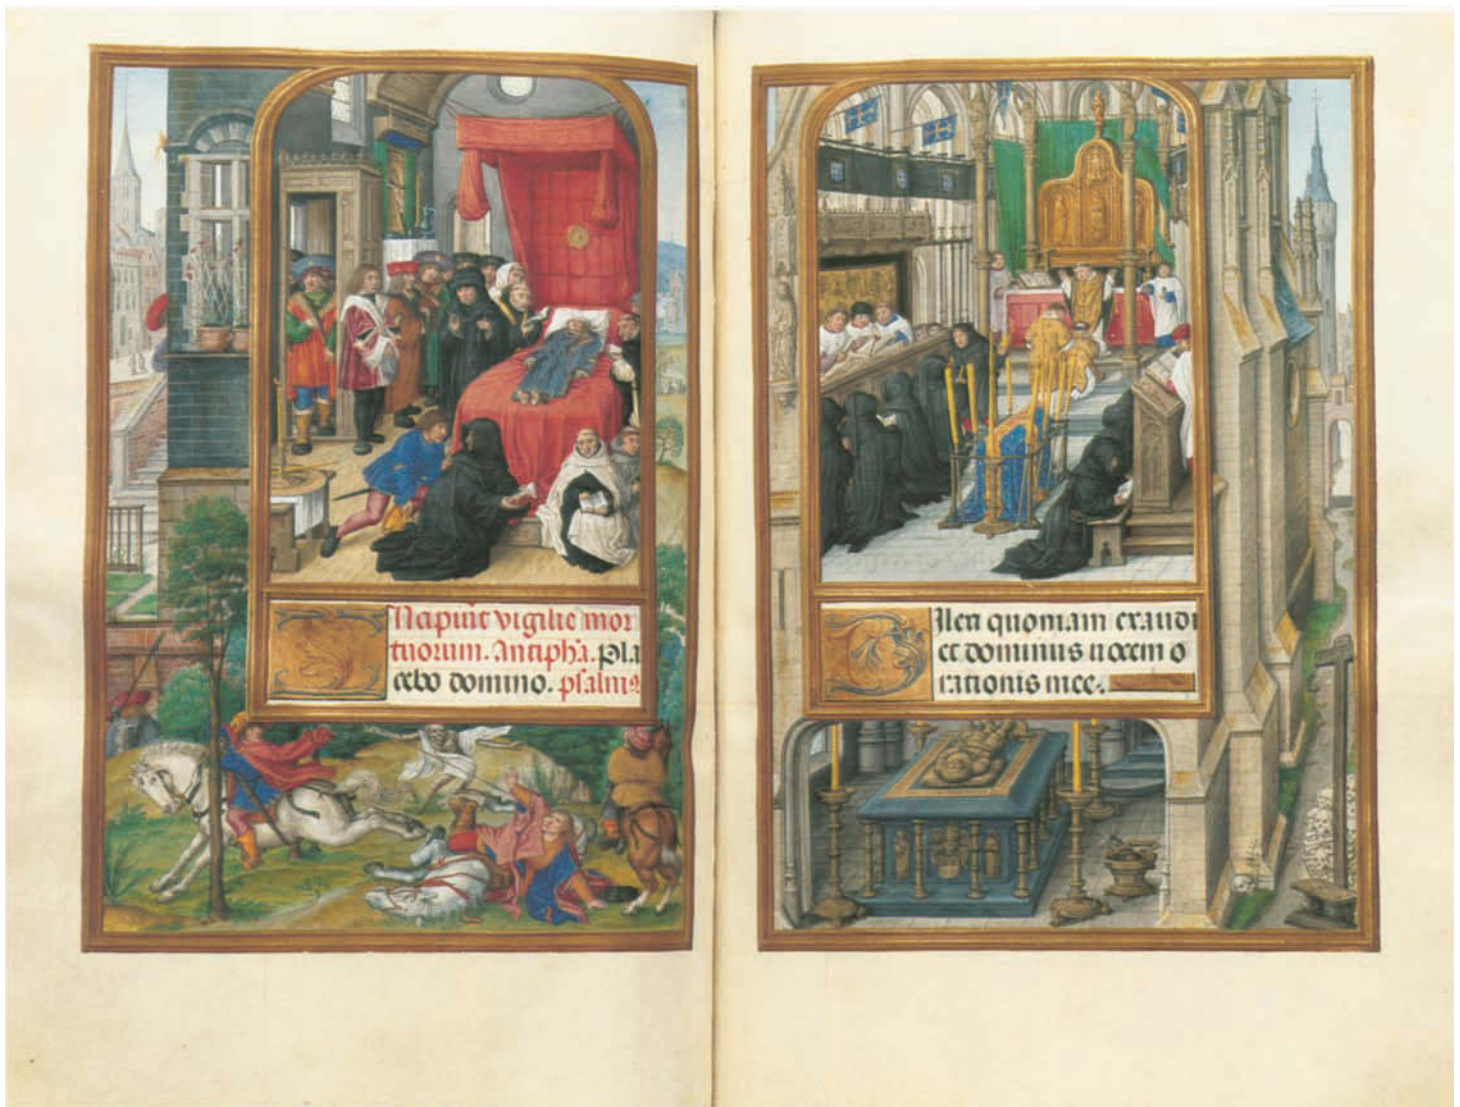 Incipiūt vigilie mor
tuorum. Antiphā. Pla
cebo domino. psalmꝰ
Dilexi quoniam exaudi
et dominus uocem o
rationis mee.